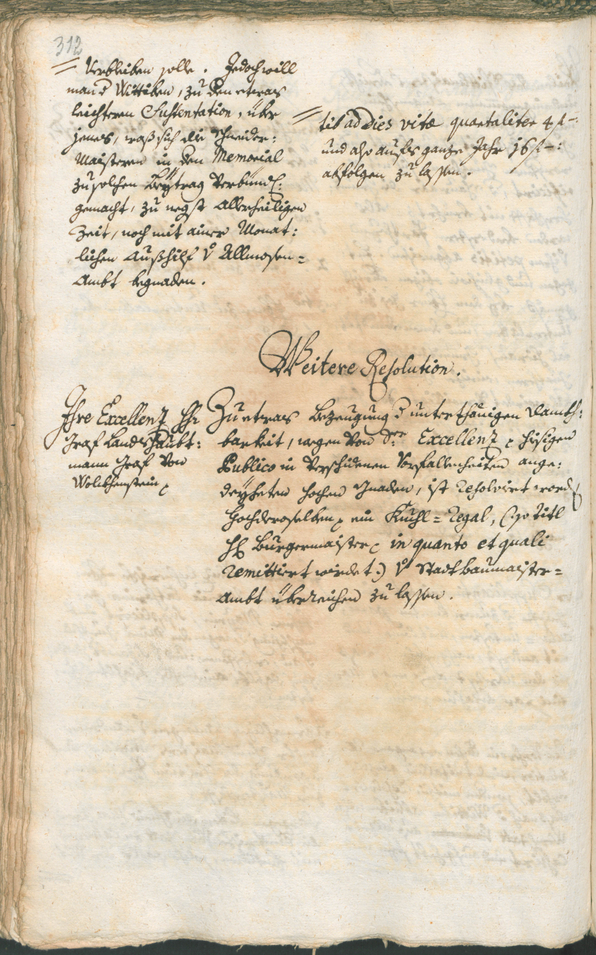 312
Verbleiben solle. Jedoch will
man d Wittiben, zu den etwas
leichteren Sustentation, über
jenes, waß sich die Schneider-
Maistere in dem Memorial
zu solchen Beytrag verbündl:
gemacht, zu negst Allerheiligen
Zeit, noch mit ainer Monat:
lichen Außhilf v Allmosen-
Ambt begnaden.
tis ad dies vitæ quartaliter 4 f –
und also aufs ganze Jahr 16 f –:
abfolgen zu lassen.
Weitere Resolution.
Ihre Excellenz Hr
Graf Landshaubt:
mann Graf von
Wolkhenstein
Zu etwas Bezeugung d unterthänigen Dankh:
barkeit, wegen von Sr Excellenz hiesigen
Publico in verschidenen Vorfallenheiten ange:
deyheten hochen Gnaden, ist resolvirt word
Hochderoselben ein Kuchl-Regal, (: so titl
H Burgermaister in quanto et quali
remittiert wirdet :) v Stadtbaumaister-
Ambt überreichen zu lassen.